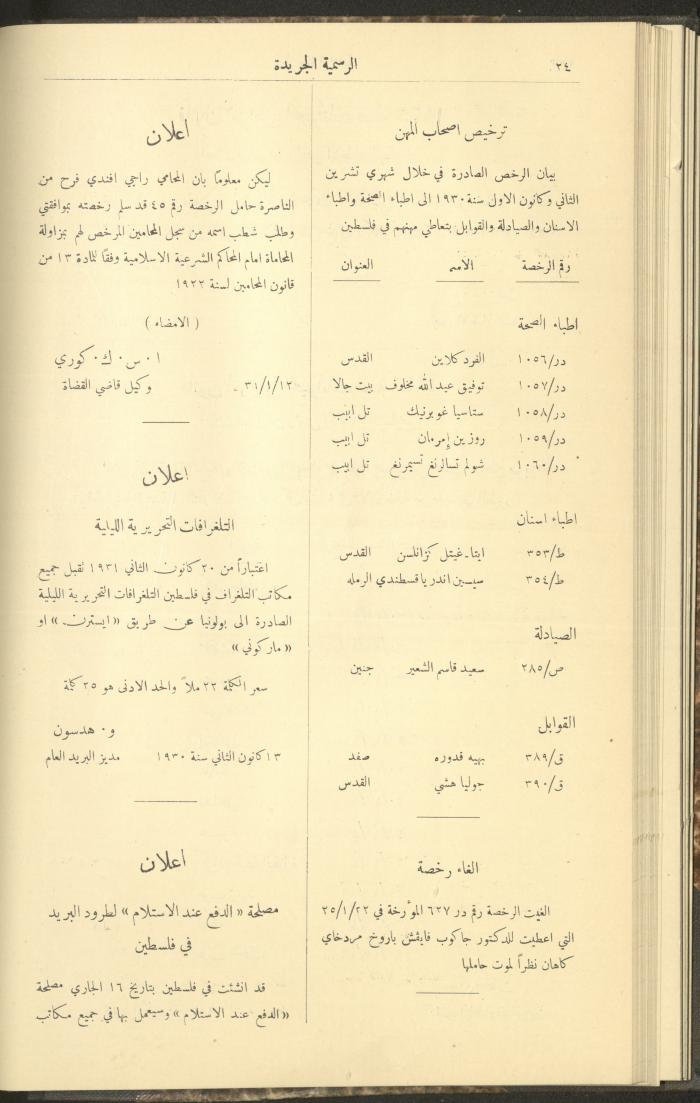 ٢٤
الرسمية الجريدة
ترخيص اصحاب المهن
بيان الرخص الصادرة في خلال شهري تشرين
الثاني وكانون الاول سنة ١٩٣٠ الى اطباء الصحة واطباء
الاسنان والصيادلة والقوابل بتعاطي مهنهم في فلسطين
رقم الرخصة الاسم العنوان
اطباء الصحة
در/١٠٥٦ الفرد كلاين القدس
در/١٠٥٧ توفيق عبد الله مخلوف بيت جالا
در/١٠٥٨ ستاسيا غوبرنيك تل ابيب
در/١٠٥٩ روزين إمرمان تل ابيب
در/١٠٦٠ شولم تسالرنغ تسيمرنغ تل ابيب
اطباء اسنان
ط/٣٥٣ ايتا-غيتل كزانلسن القدس
ط/٣٥٤ سيسين اندرياقسطندي الرمله
الصيادلة
ص/٢٨٥ سعيد قاسم الشعير جنين
القوابل
ق/٣٨٩ بهيه قدوره صفد
ق/٣٩٠ جوليا هشي القدس
الغاء رخصة
الغيت الرخصة رقم در ٦٢٧ المؤرخة في ٢٥/١/٢٢
التي اعطيت للدكتور جاكوب فايفش باروخ مردخاي
كاهان نظراً لموت حاملها
اعلان
ليكن معلومًا بان المحامي راجي افندي فرح من
الناصرة حامل الرخصة رقم ٤٥ قد سلم رخصته بموافقتي
وطلب شطب اسمه من سجل المحامين المرخص لهم بمزاولة
المحاماة امام المحاكم الشرعية الاسلامية وفقًا للمادة ١٣ من
قانون المحامين لسنة ١٩٢٢
( الامضاء )
ا٠ س٠ ك٠ كوري
٣١/١/١٢ وكيل قاضي القضاة
اعلان
التلغرافات التحريرية الليلية
اعتباراً من ٢٠ كانون الثاني ١٩٣١ تقبل جميع
مكاتب التلغراف في فلسطين التلغرافات التحريرية الليلية
الصادرة الى بولونيا عن طريق «ايسترن» او
«ماركوني»
سعر الكلمة ٢٢ ملاً والحد الادنى هو ٢٥ كلمة
و٠ هدسون
١٣ كانون الثاني سنة ١٩٣٠ مدير البريد العام
اعلان
مصلحة «الدفع عند الاستلام» لطرود البريد
في فلسطين
قد انشئت في فلسطين بتاريخ ١٦ الجاري مصلحة
«الدفع عند الاستلام» وسيعمل بها في جميع مكاتب